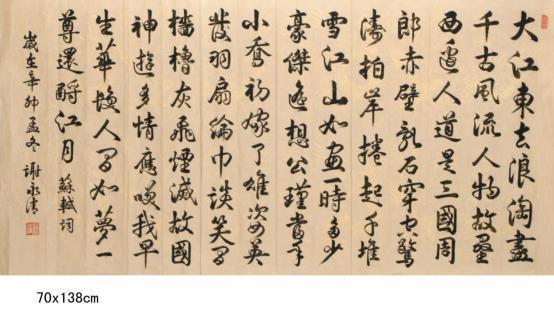 大江東去浪淘盡
千古風流人物故壘
西邊人道是三國周
郎赤壁亂石穿空驚
濤拍岸捲起千堆
雪江山如畫一時多少
豪傑遙想公瑾當年
小喬初嫁了雄姿英
發羽扇綸巾談笑間
檣櫓灰飛煙滅故國
神遊多情應我早
生華髮人間如夢一
尊還酹江月 蘇軾詞
歲在辛卯孟冬 謝永清
70x138cm